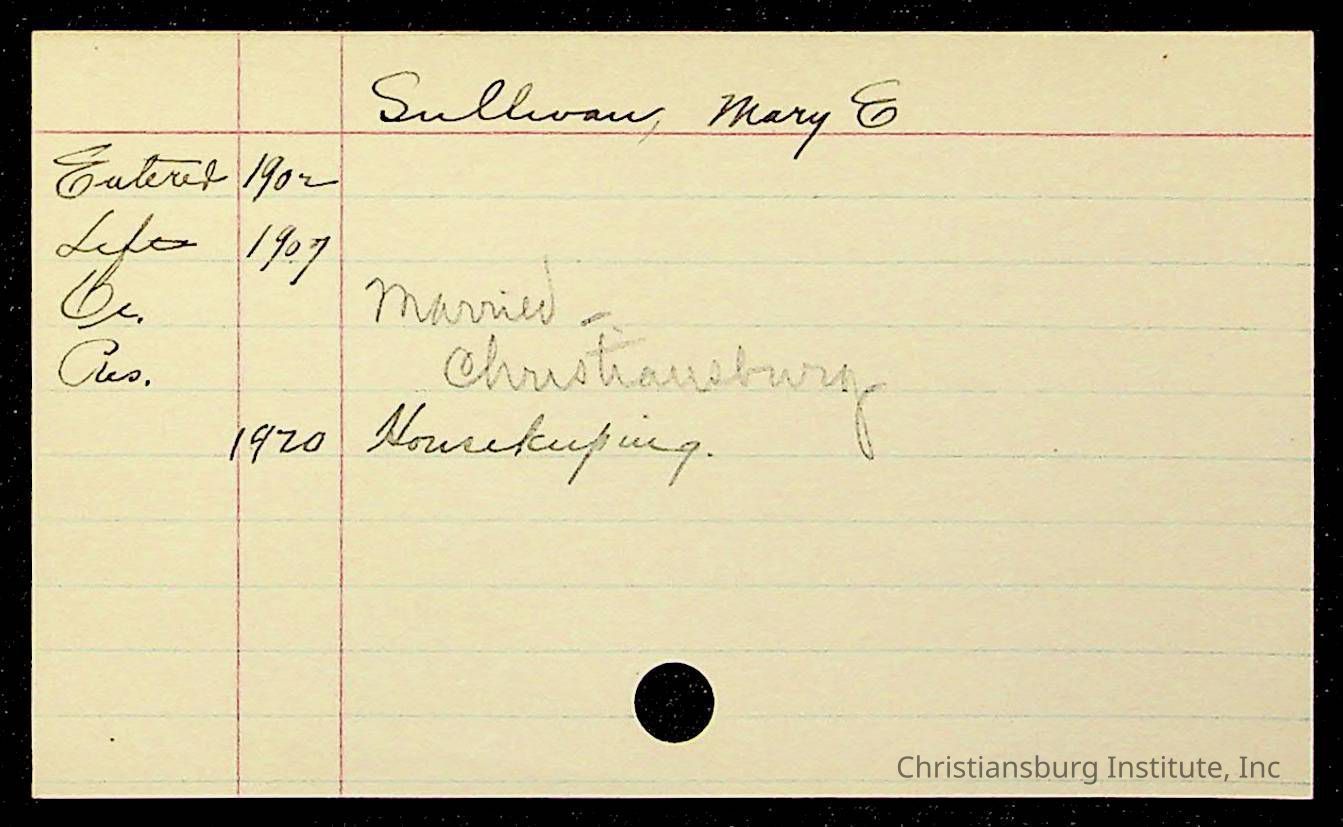 Sullivan, Mary E
Entered 1902
Left 1907
Oc. Married -
Res. Christiansburg
1920 Housekeeping.
Christiansburg Institute, Inc